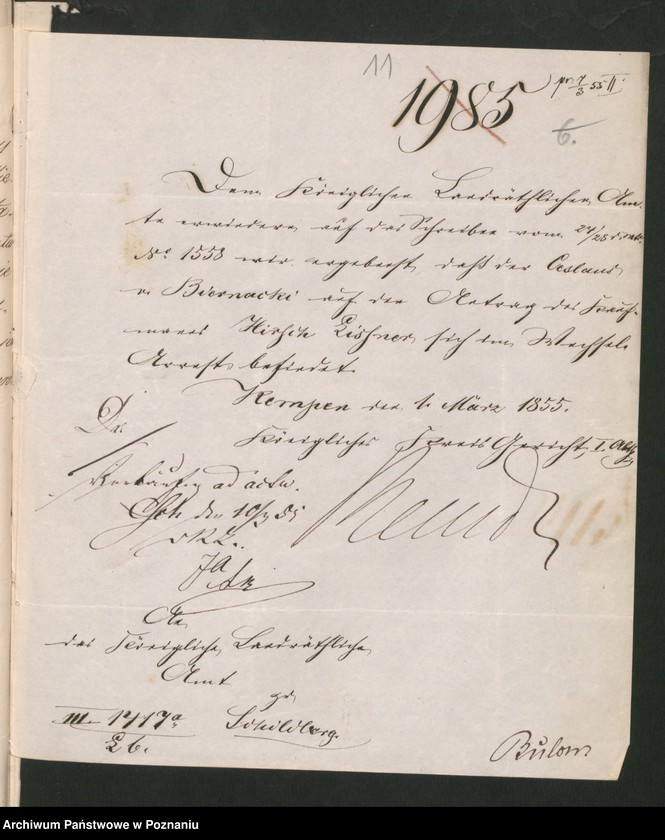 11
1985
pr. 7/3 55 II.
6.
Dem Königlichen Landräthlichen Am-
te erwiedern auf das Schreiben vom 24/28 d. mts.
No 1558 wir ergebenst, daß der Ceslaus
v. Biernacki auf den Antrag des Kauf-
manns Hirsch Lissner sich im Wechsel-
Arrest befindet.
Kempen den 1. März 1855.
Königliches Kreis Gericht, I. Abth
Vorläufig ad acta.
Sch. den 10/3 55
An
das Königliche Landräthliche
Amt
zu
Schildberg.
III. 1717a
26.
Bülow
Archiwum Państwowe w Poznaniu